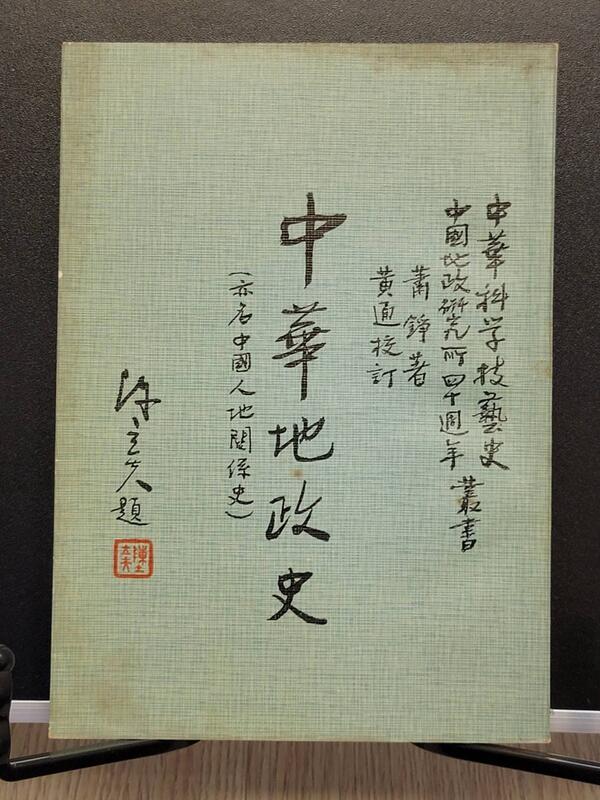 中華科学技藝史
中國地政研究所四十週年
叢書
蕭錚著
黃通校訂
中華地政史
(亦名中國人地關係史)
陳立夫題
陳立夫